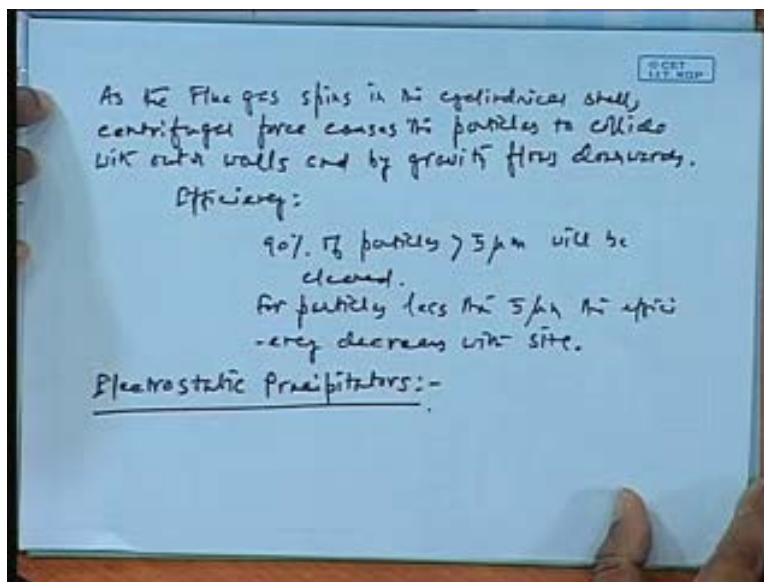 © CET
I.I.T. KGP
As the Flue gas spins in the cylindrical shell,
centrifugal force causes the particles to collide
with outer walls and by gravity flows downwards.
Efficiency:
90%. of particles > 5 μm will be
cleaned.
for particles less than 5 μm the effici
-ency decreases with size.
Electrostatic Precipitators:-